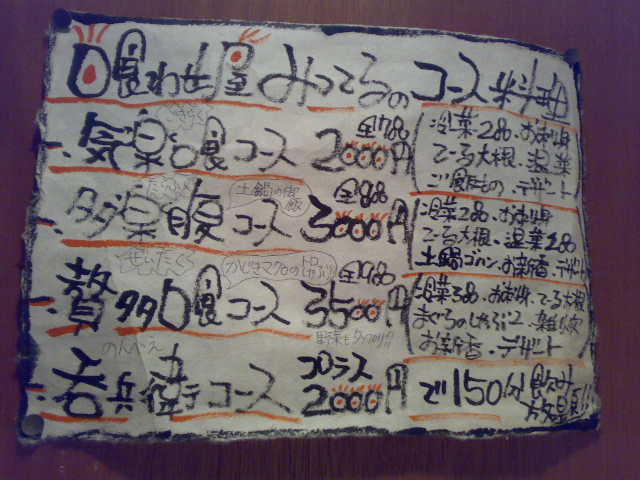 口喰わせ屋みってるのコース料理
一、気楽喰コース 2000円 全7品
冷菜2品・お刺身
でーる大根・温菜
ご飯もの・デザート
たらふく
土鍋の御飯
一、多楽腹コース 3000円 全8品
冷菜2品・お刺身
でーる大根・温菜2品
土鍋ゴハン・お新香・デザート
ぜいたく
かじきマグロのトロしゃぶ
一、贅タタ喰コース 3500円 全9品
冷菜3品・お刺身・でーる大根
まぐろのしゃぶしゃぶ・雑炊
お新香・デザート
野菜もタップリ!!
のんべえ
一、呑兵衛コース プラス2000円で150分飲み放題!!